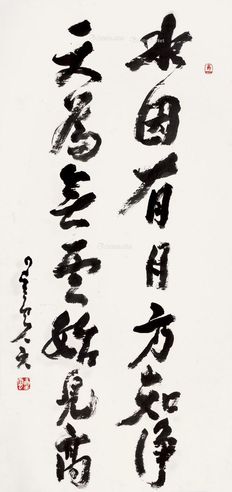 水因有月方知净
天為無雲始見高
星雲